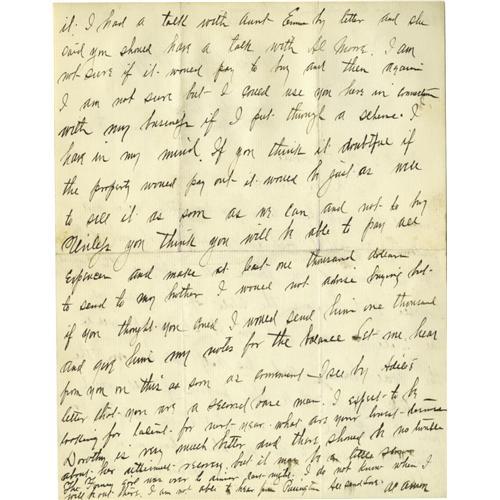 it. I had a talk with Aunt Emma by letter and she
said you should have a talk with Al Moore. I am
not sure if it would pay to buy and then again
I am not sure but I could use you here in connection
with my business if I put through a scheme I
have in my mind. If you think it doubtful if
the property would pay out it would be just as well
to sell it as soon as we can and not to buy
Unless you think you will be able to pay all
expences and make at least one thousand dollars
to send to my brother I would not advise buying but
if you thought you could I would send him one thousand
and give him my notes for the balance Let me hear
from you on this as soon as convenient I see by
letter that you are a second base man. I expect to be
looking for talent for next year what are your lowest
Dorothy is very much better and there should be no trouble
about her ultimate recovery but it may be a little slow
The girl was over to dinner last night. I do not know when I
will be out there. I am not able to hear from